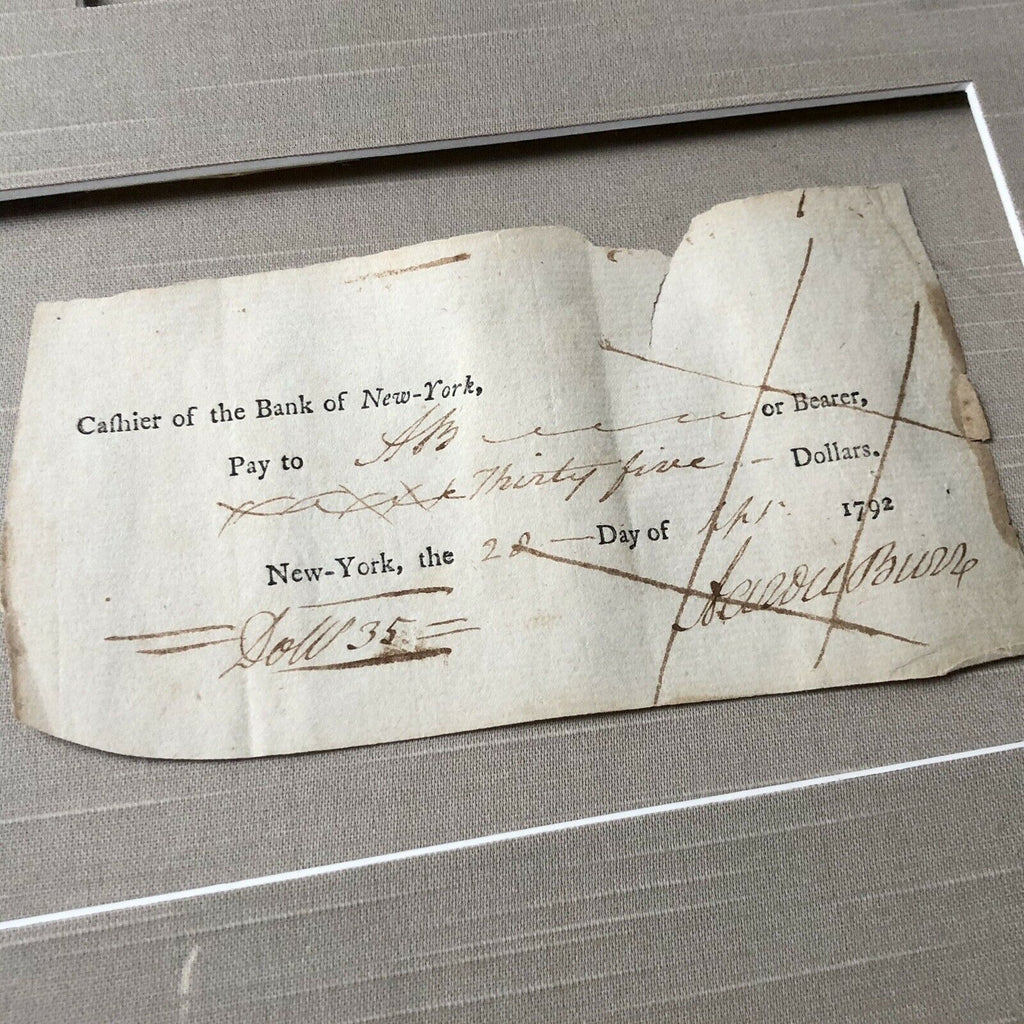 Caſhier of the Bank of New-York,
Pay to AB or Bearer,
Thirty five Dollars.
New-York, the 28 Day of Apr. 1792
Aaron Burr
Doll 35